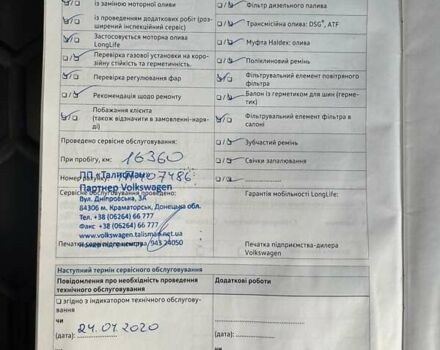 із заміною моторної оливи
із проведенням додаткових робіт (роз-
ширений інспекційний сервіс)
Застосовується моторна олива
LongLife
Перевірка газової установки на коро-
зійну стійкість та герметичність.
Перевірка регулювання фар
Рекомендація щодо ремонту
Побажання клієнта
(також відзначити в замовленні-наря-
ді)
Фільтр дизельного палива
Трансмісійна олива: DSG®, ATF
Муфта Haldex: олива
Поліклиновий ремінь
Фільтрувальний елемент повітряного
фільтра
Балон із герметиком для шин (герме-
тик)
Фільтрувальний елемент фільтра в
салоні
Зубчастий ремінь
Свічки запалювання
Проведено сервісне обслуговування:
При пробігу, км: 16360
Номер рахунку: 7486
Сервісне обслуговування проведено:
ПП «Талисман»
Партнер Volkswagen
Вул. Дніпровська, 3А
84306 м. Краматорськ, Донецька обл.
Тел. +38 (06264) 66 777
Факс +38 (06264) 66 777
www.volkswagen.talisman.net.ua
943 24050
Гарантія мобільності LongLife:
Печатка підприємства-дилера
Volkswagen
Наступний термін сервісного обслуговування
Повідомлення про необхідність проведення
технічного обслуговування
Додаткові роботи
згідно з індикатором технічного обслугову-
вання
чи
(дата): 24.07.2020
чи
(дата):